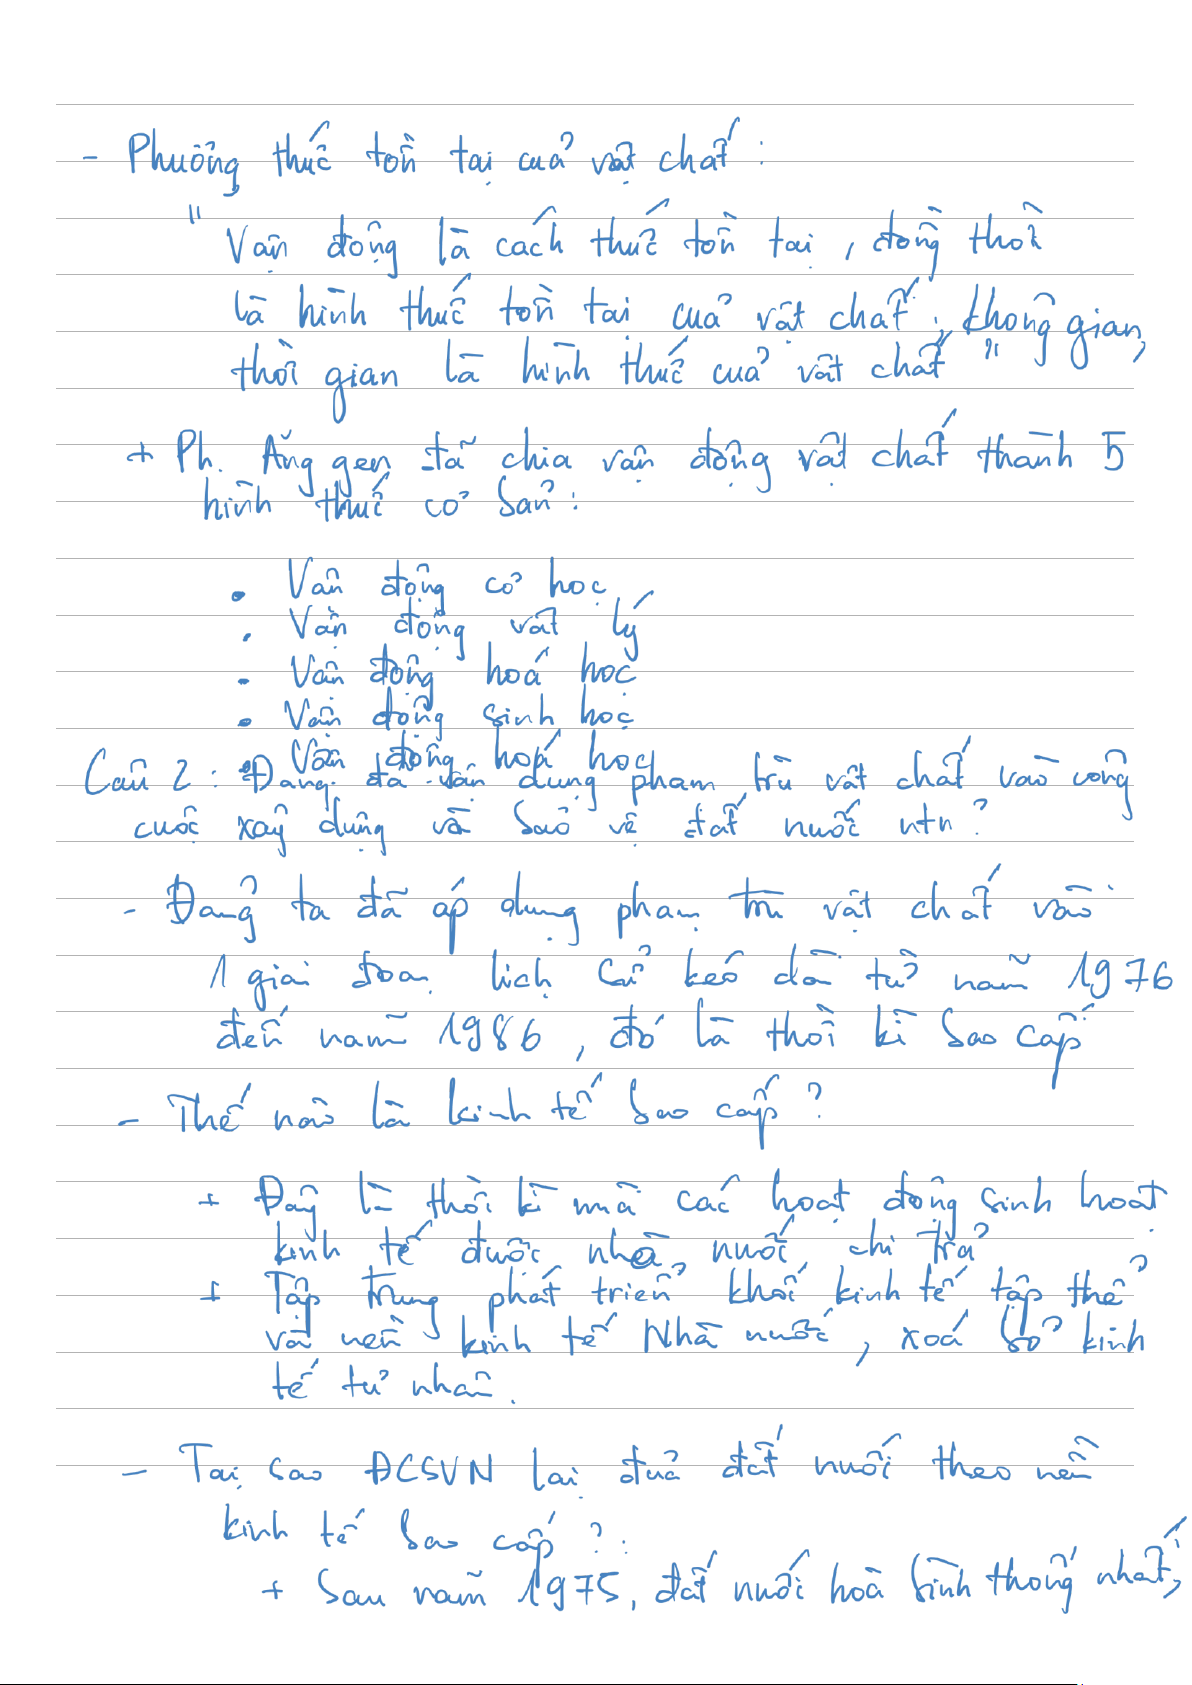 - Phương thức tồn tại của vật chất :
" Vận động là cách thức tồn tại , đồng thời
là hình thức tồn tại của vật chất ; không gian,
thời gian là hình thức của vật chất "
+ Ph. Ăng gen đã chia vận động vật chất thành 5
hình thức cơ bản :
• Vận động cơ học
• Vận động vật lý
• Vận động hoá học
• Vận động sinh học
• Vận động hoá học
Câu 2 : Đảng đã vận dụng phạm trù vật chất vào công
cuộc xây dựng và bảo vệ đất nước ntn ?
- Đảng ta đã áp dụng phạm trù vật chất vào
1 giai đoạn lịch cử kéo dài từ năm 1976
đến năm 1986 , đó là thời kì bao cấp
- Thế nào là kinh tế bao cấp ?
+ Đây là thời kì mà các hoạt động sinh hoạt
kinh tế được nhà nước chi trả
+ Tập trung phát triển khối kinh tế tập thể
và nền kinh tế Nhà nước , xoá bỏ kinh
tế tư nhân .
- Tại sao ĐCSVN lại đưa đất nước theo nền
kinh tế bao cấp ? :
+ Sau năm 1975 , đất nước hoà bình thống nhất,